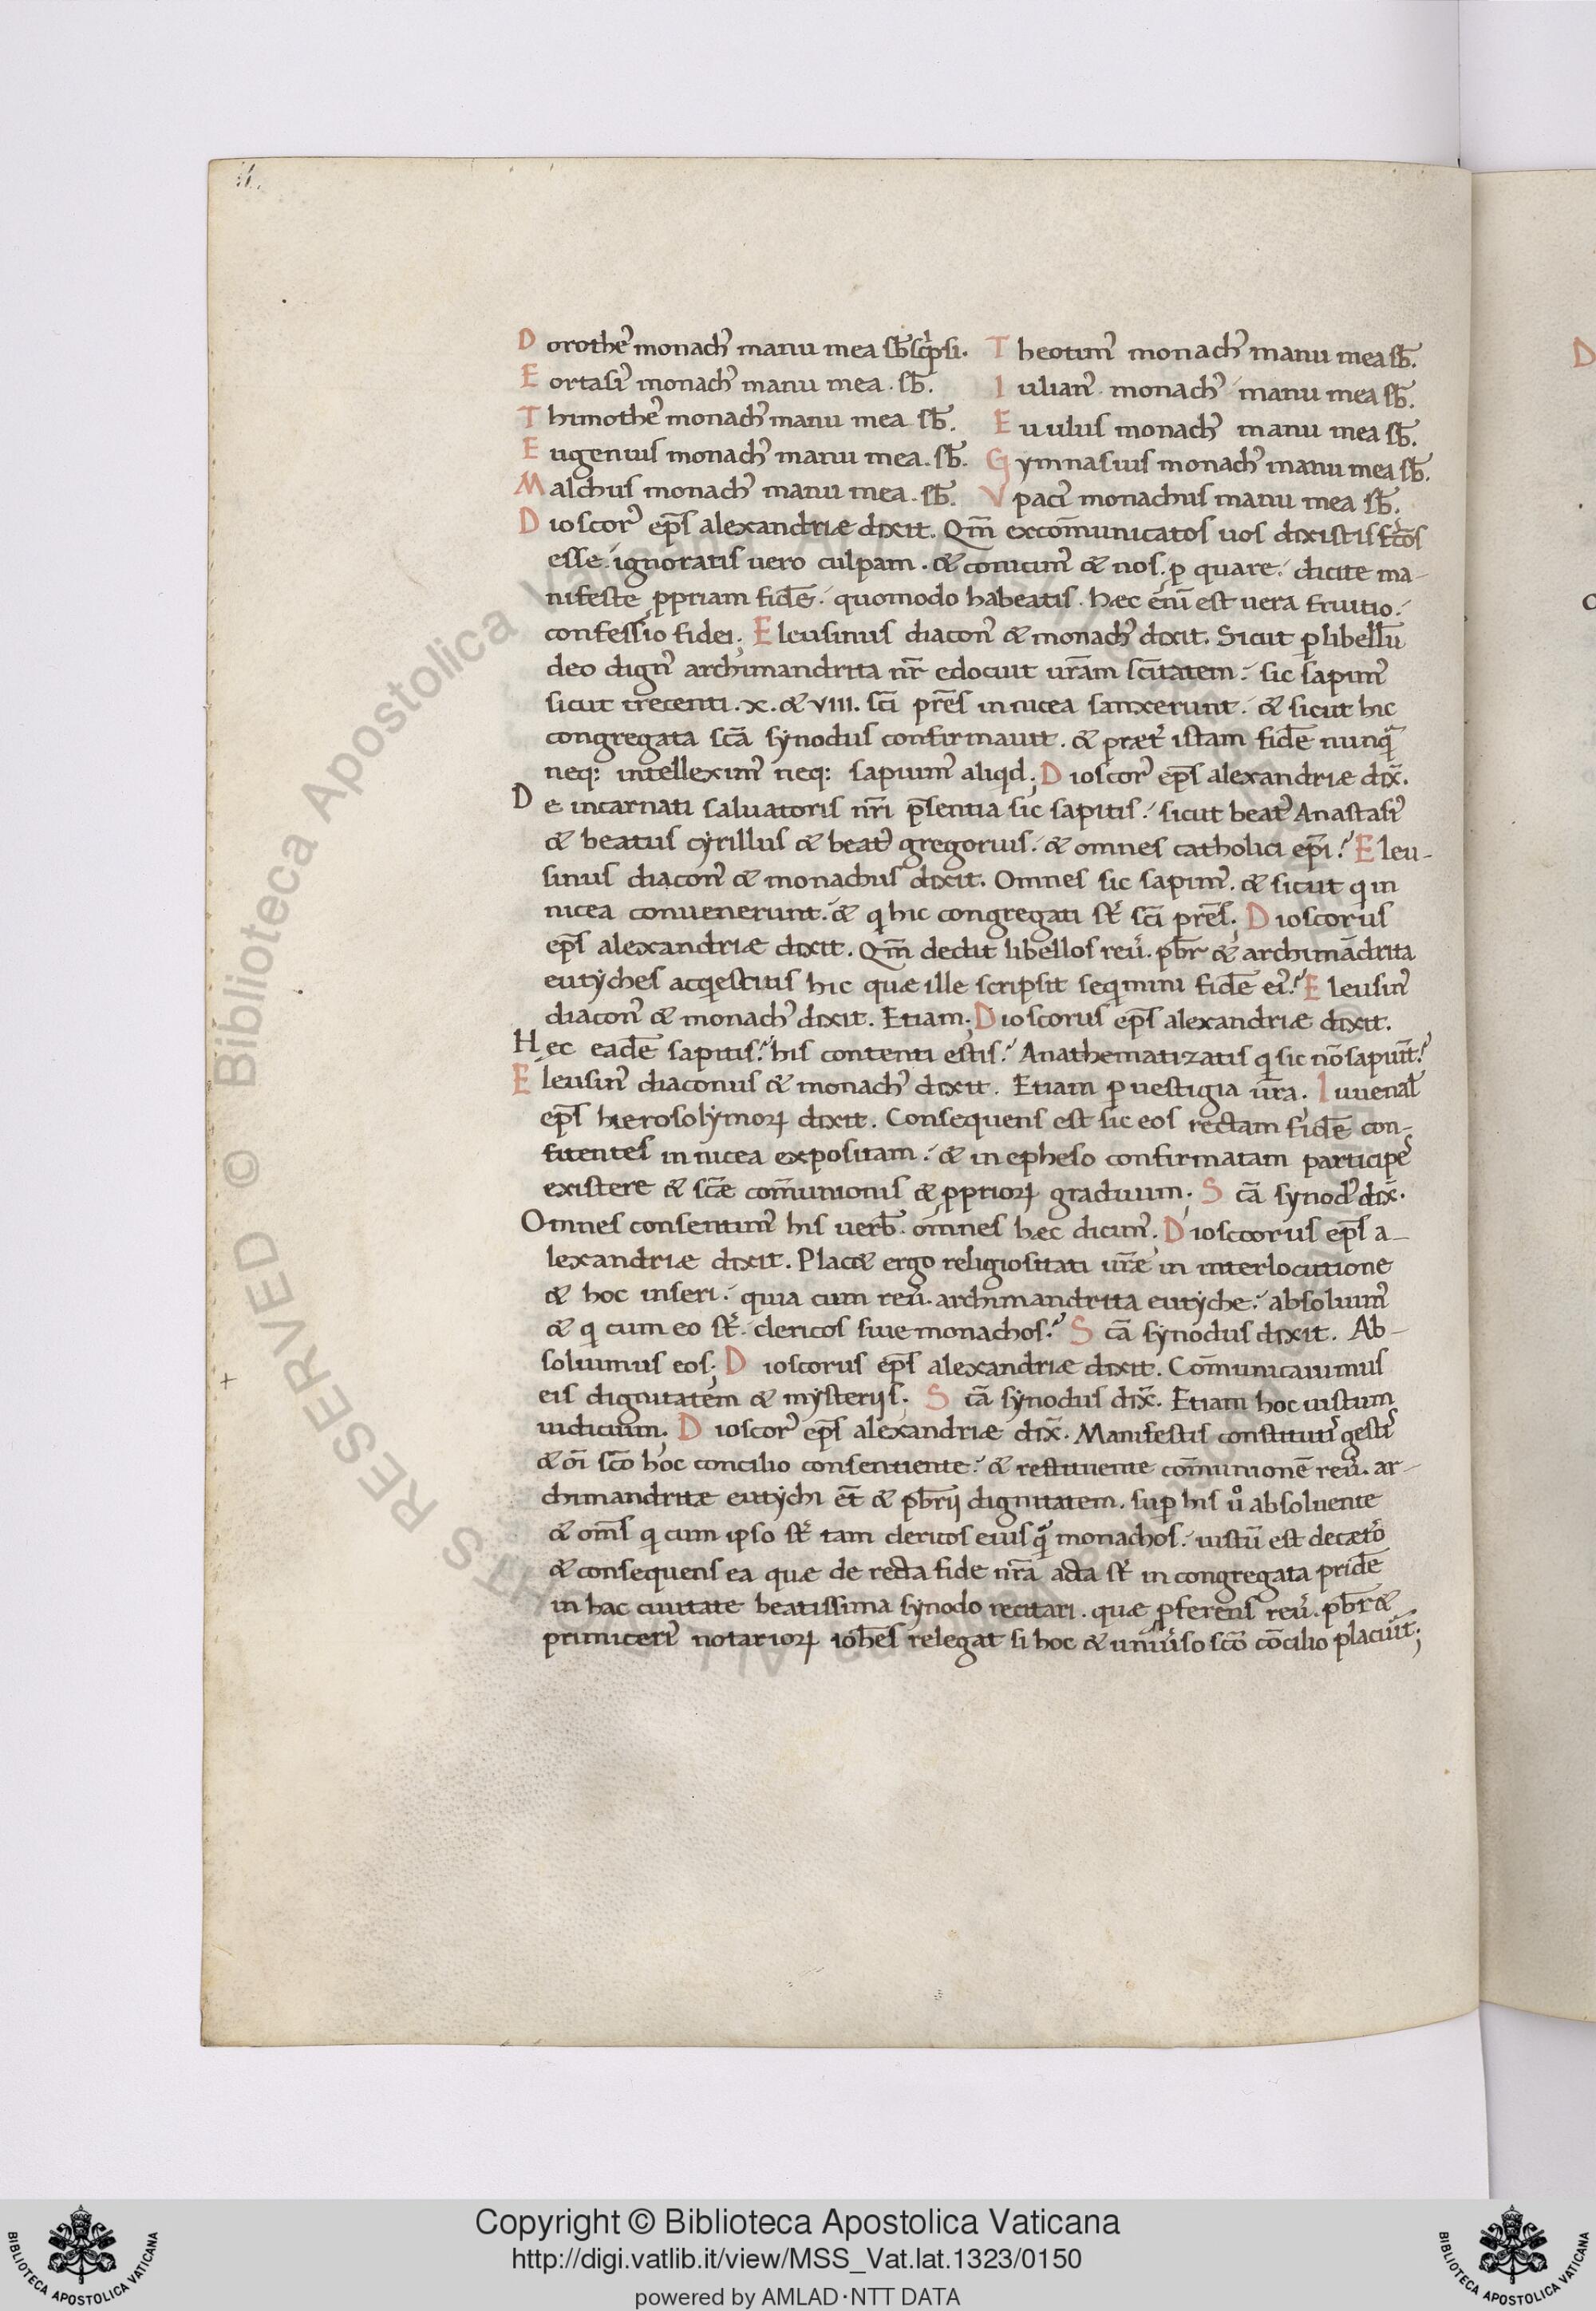 Dorotheꝰ monachꝰ manu mea sb̄scͥpsi.
Eortasiꝰ monachꝰ manu mea. sb̄.
Thimotheꝰ monachꝰ manu mea sb̄.
Eugenius monachꝰ manu mea. sb̄.
Malchus monachꝰ manu mea. sb̄.
Theotimꝰ monachꝰ manu mea sb̄.
Iulianꝰ monachꝰ manu mea sb̄.
Euulus monachꝰ manu mea sb̄.
Gymnasius monachꝰ manu mea sb̄.
Vpaciꝰ monachus manu mea sb̄.
Dioscorꝰ ep̄s alexandriæ dixit. Qm̄ excōmunicatos uos dixistis
esse. ignoratis uero culpam. & conicimꝰ & nos. ꝑ quare. dicite ma-
nifeste ꝓpriam fidē. quomodo habeatis. hæc eni est uera fruitio.
confessio fidei; Eleusinus diaconꝰ & monachꝰ dixit. Sicut ꝑ libellū
deo dignꝰ archimandrita nr̄ edocuit ur̄am sc̄itatem. sic sapimꝰ
sicut trecenti. x. & viii. sc̄i pr̄es in nicea sanxerunt. & sicut hic
congregata sc̄a synodus confirmauit. & præt̓ istam fidē nunqᷓ
neq: intelleximꝰ neq: sapiumꝰ aliqd; Dioscorꝰ ep̄s alexandriæ dix̄.
De incarnati saluatoris nr̄i p̄sentia sic sapitis. sicut beatꝰ Anastasiꝰ
& beatus cyrillus & beatꝰ gregorius. & omnes catholici ep̄i? Eleu-
sinus diaconꝰ & monachus dixit. Omnes sic sapimꝰ. & sicut qi in
nicea conuenerunt. & qi hic congregati st̓ sc̄i pr̄es; Dioscorus
ep̄s alexandriæ dixit. Qm̄ dedit libellos reu̓. pbr̄ & archimādrita
eutyches acqiestitis hic quæ ille scripsit seqimini fidē eiꝰ? Eleusinꝰ
diaconꝰ & monachꝰ dixit. Etiam; Dioscorus ep̄s alexandriæ dixit.
Hec eadē sapitis? his contenti estis? Anathematizatis qi sic nō sapiūt?
Eleusinꝰ diaconus & monachꝰ dixit. Etiam ꝑ uestigia ur̄a. Iuuenal̄
ep̄s hierosolymoꝝ dixit. Consequens est sic eos rectam fidē con-
fitentes in nicea expositam. & in epheso confirmatam participeꝰ
existere & sc̄æ com̄unionis & ꝓprioꝝ graduum; Sc̄a synodꝰ dix̄.
Omnes consentimꝰ his uerb̄. omnes hæc dicimꝰ. Dioscorus ep̄s a-
lexandriæ dixit. Plac& ergo religiositati ur̄æ in interlocutione
& hoc inseri. quia cum reu̓. archimandrita eutyche. absoluimꝰ
& qi cum eo st̓. clericos siue monachos? Sc̄a synodus dixit. Ab-
soluimus eos; Dioscorus ep̄s alexandriæ dixit. Com̄unicauimus
eis dignitatem & mysterijs; Sc̄a synodus dix̄. Etiam hoc iustum
iudicium; Dioscorꝰ ep̄s alexandriæ dix̄. Manifestis constitutꝭ gestꝭ
& oī sc̄o hoc concilio consentiente. & restituente com̄unionē reu̓. ar-
chimandritæ eutychi et̄ & pbr̄ij dignitatem. suꝑ his uͦ absoluente
& om̄s qi cum ipso st̓ tam clericos eius qᷓ monachos. iustū est decæt̓o
& consequens ea quæ de recta fide nr̄a acta st̓ in congregata pridē
in hac ciuitate beatissima synodo recitari. quæ ꝓferens reu̓. pbr̄ &
primiceriꝰ notarioꝝ ioh̄es relegat si hoc & uniu̓so sc̄o cōcilio placuīt;
Copyright © Biblioteca Apostolica Vaticana
http://digi.vatlib.it/view/MSS_Vat.lat.1323/0150
powered by AMLAD·NTT DATA